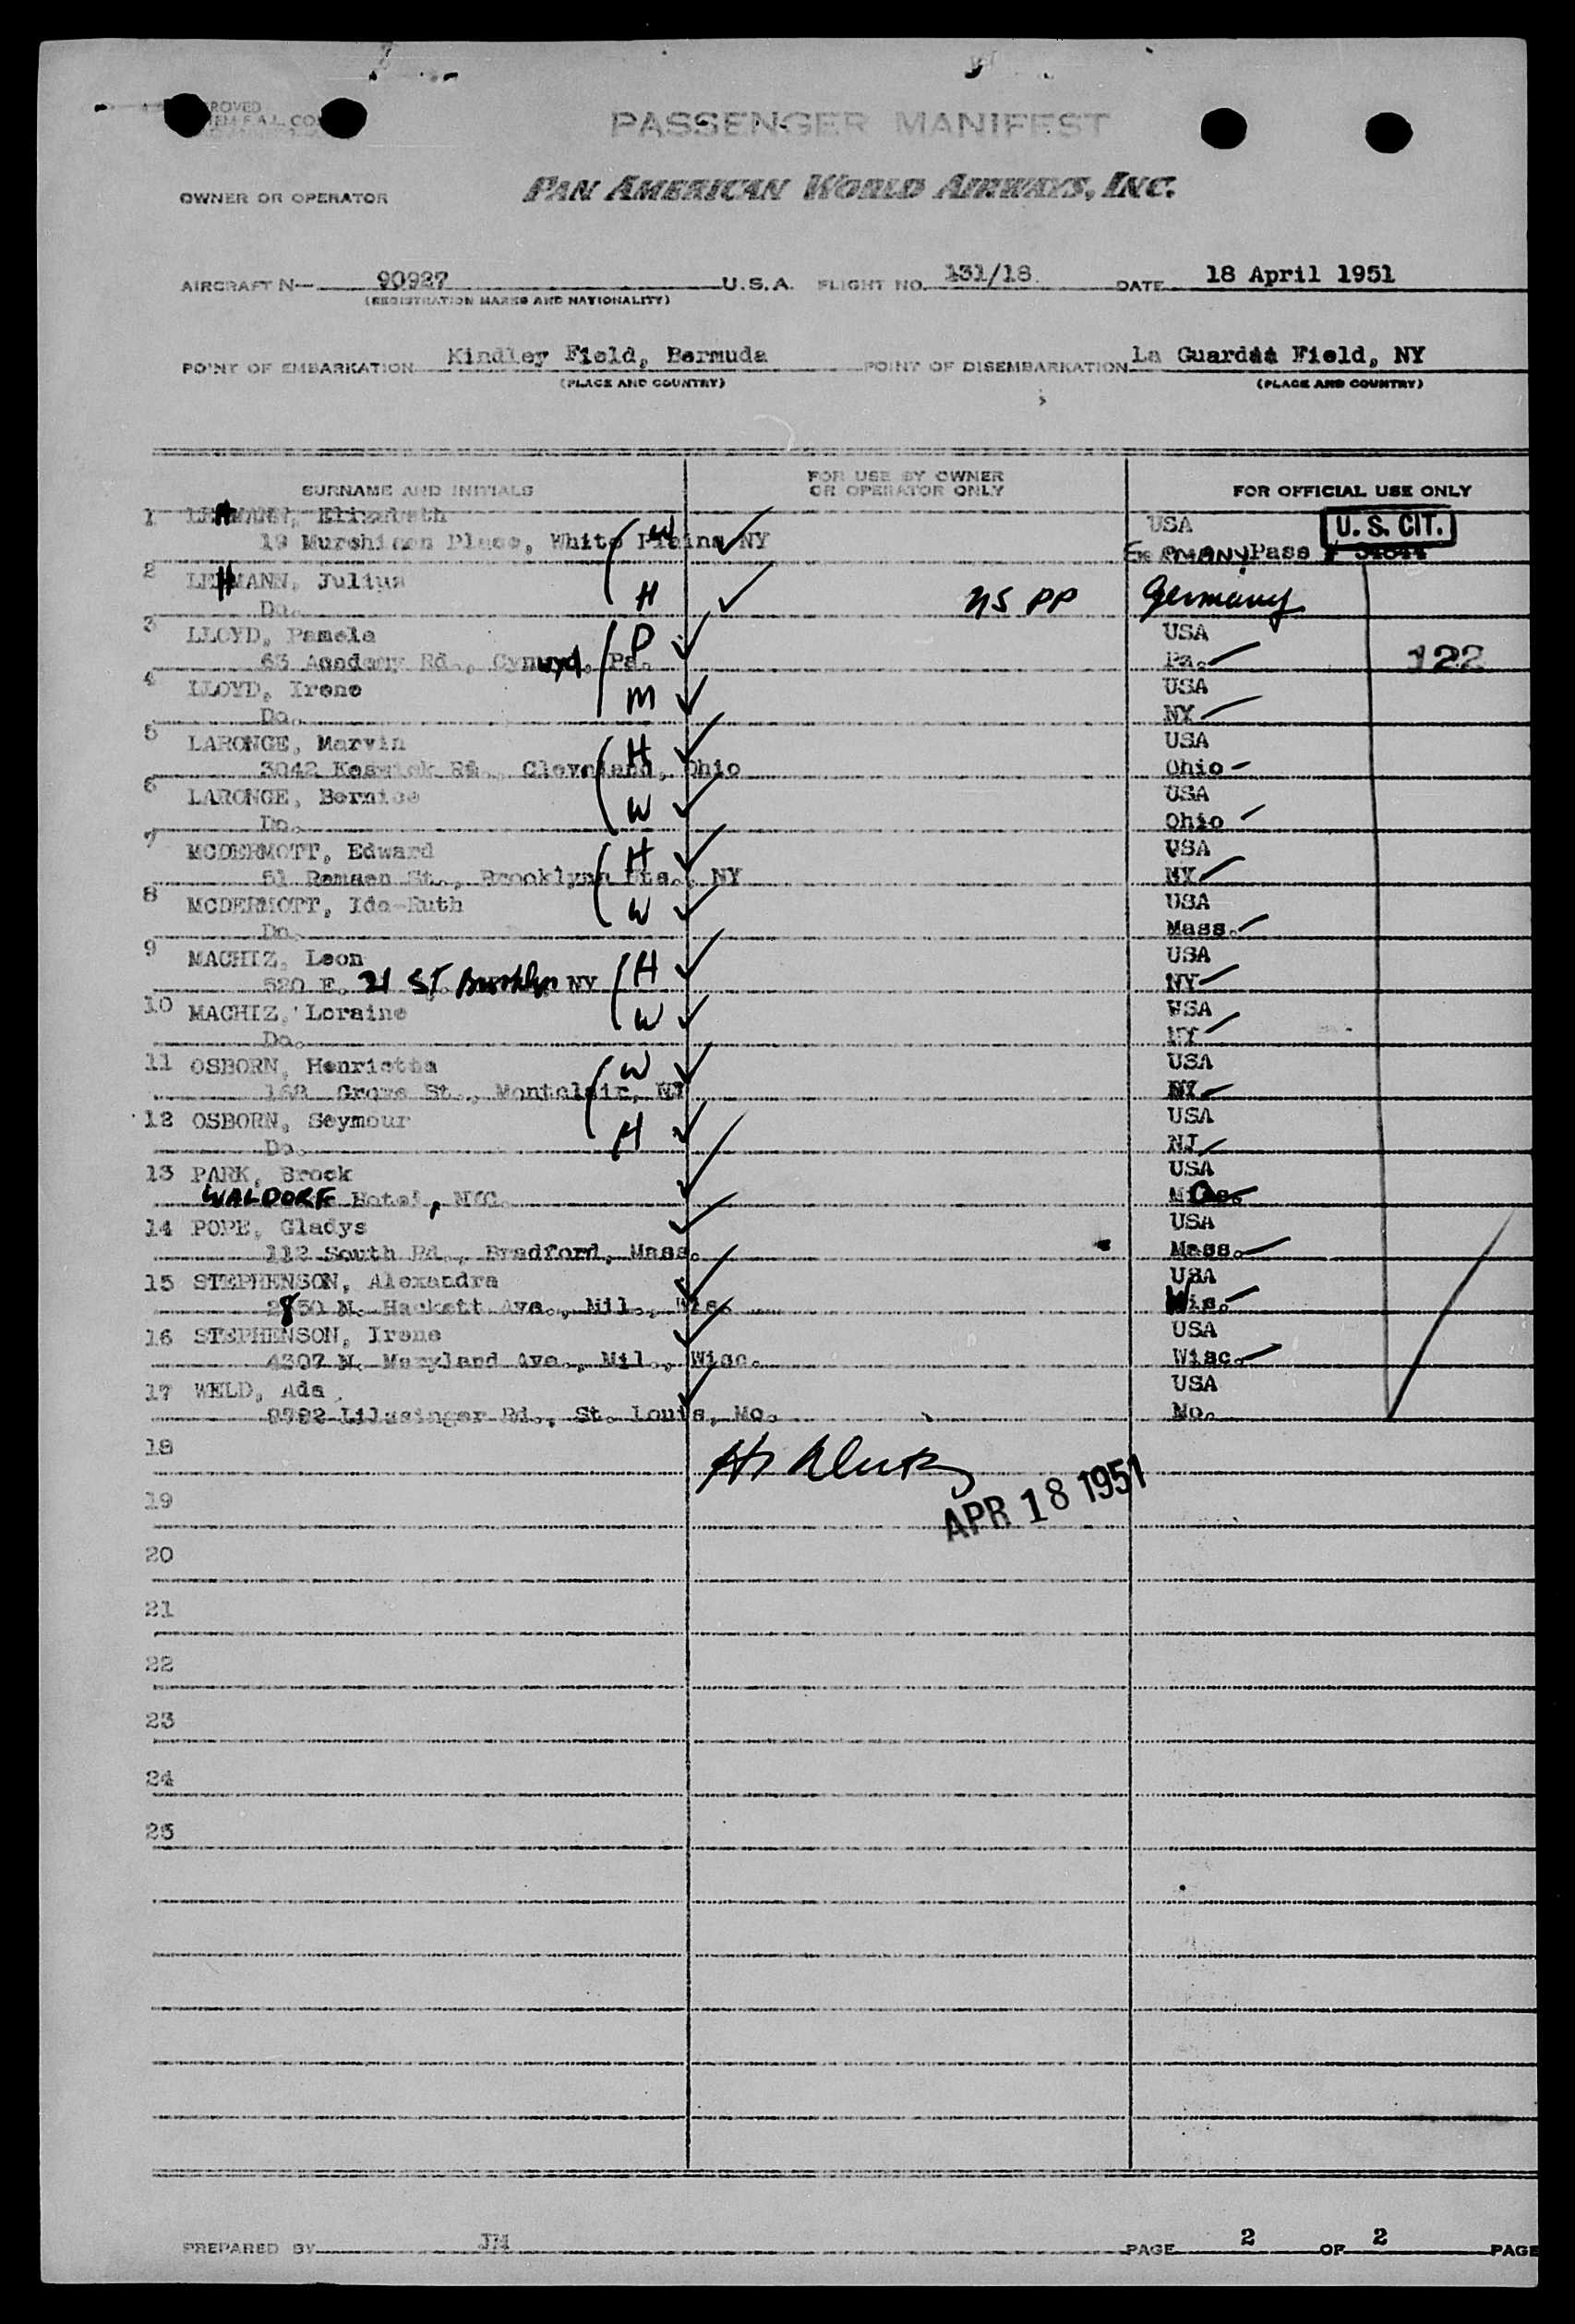 PASSENGER MANIFEST
OWNER OR OPERATOR PAN AMERICAN WORLD AIRWAYS, INC.
AIRCRAFT N— 90927 U.S.A. FLIGHT NO. 131/18 DATE 18 April 1951
(REGISTRATION MARKS AND NATIONALITY)
POINT OF EMBARKATION Kindley Field, Bermuda POINT OF DISEMBARKATION La Guardia Field, NY
(PLACE AND COUNTRY) (PLACE AND COUNTRY)
SURNAME AND INITIALS FOR USE BY OWNER OR OPERATOR ONLY FOR OFFICIAL USE ONLY
1 LEHMANN, Elizabeth USA U. S. CIT.
19 Murchison Place, White Plains NY W Germany Pass #
2 LEHMANN, Julius
Do. H US PP Germany
3 LLOYD, Pamela D USA
63 Academy Rd., Cynwyd, Pa. Pa. 122
4 LLOYD, Irene M USA
Do. NY
5 LARONGE, Marvin H USA
3042 Keswick Rd., Cleveland, Ohio Ohio
6 LARONGE, Bernice W USA
Do. Ohio
7 MCDERMOTT, Edward H USA
51 Remsen St., Brooklyn Hts., NY NY
8 MCDERMOTT, Ida-Ruth W USA
Do. Mass.
9 MACHIZ, Leon H USA
520 E. 21 ST Brooklyn NY NY
10 MACHIZ, Loraine W USA
Do. NY
11 OSBORN, Henrietta W USA
Grove St., Montclair, NJ
12 OSBORN, Seymour H USA
Do. NJ
13 PARK, Brock USA
WALDORF Hotel, NYC
14 POPE, Gladys USA
112 South Rd., Bradford, Mass. Mass.
15 STEPHENSON, Alexandra USA
2850 N. Hackett Ave., Mil., Wis. Wis.
16 STEPHENSON, Irene USA
4307 N. Maryland Ave., Mil., Wisc. Wisc.
17 WELD, Ada USA
Rd., St. Louis, Mo. Mo.
18
19 APR 18 1951
20
21
22
23
24
25
PREPARED BY JM PAGE 2 OF 2 PAGE